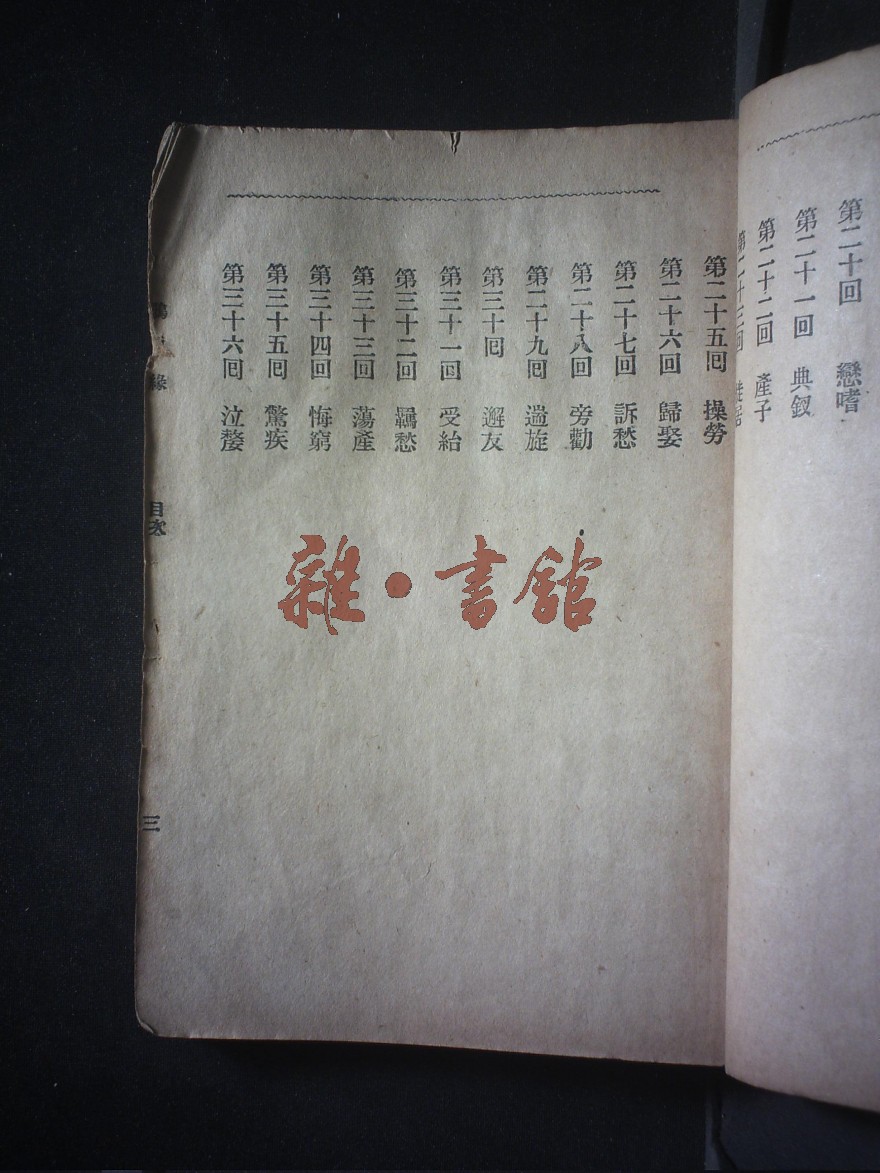 第二十回 戀嗜
第二十一回 典釵
第二十二回 產子
第二十三回 居
第二十五回 操勞
第二十六回 歸娶
第二十七回 訴愁
第二十八回 旁勸
第二十九回 遄旋
第三十回 邂友
第三十一回 受紿
第三十二回 羈愁
第三十三回 蕩產
第三十四回 悔窮
第三十五回 驚疾
第三十六回 泣嫠
緣
目次
三
雜·書館